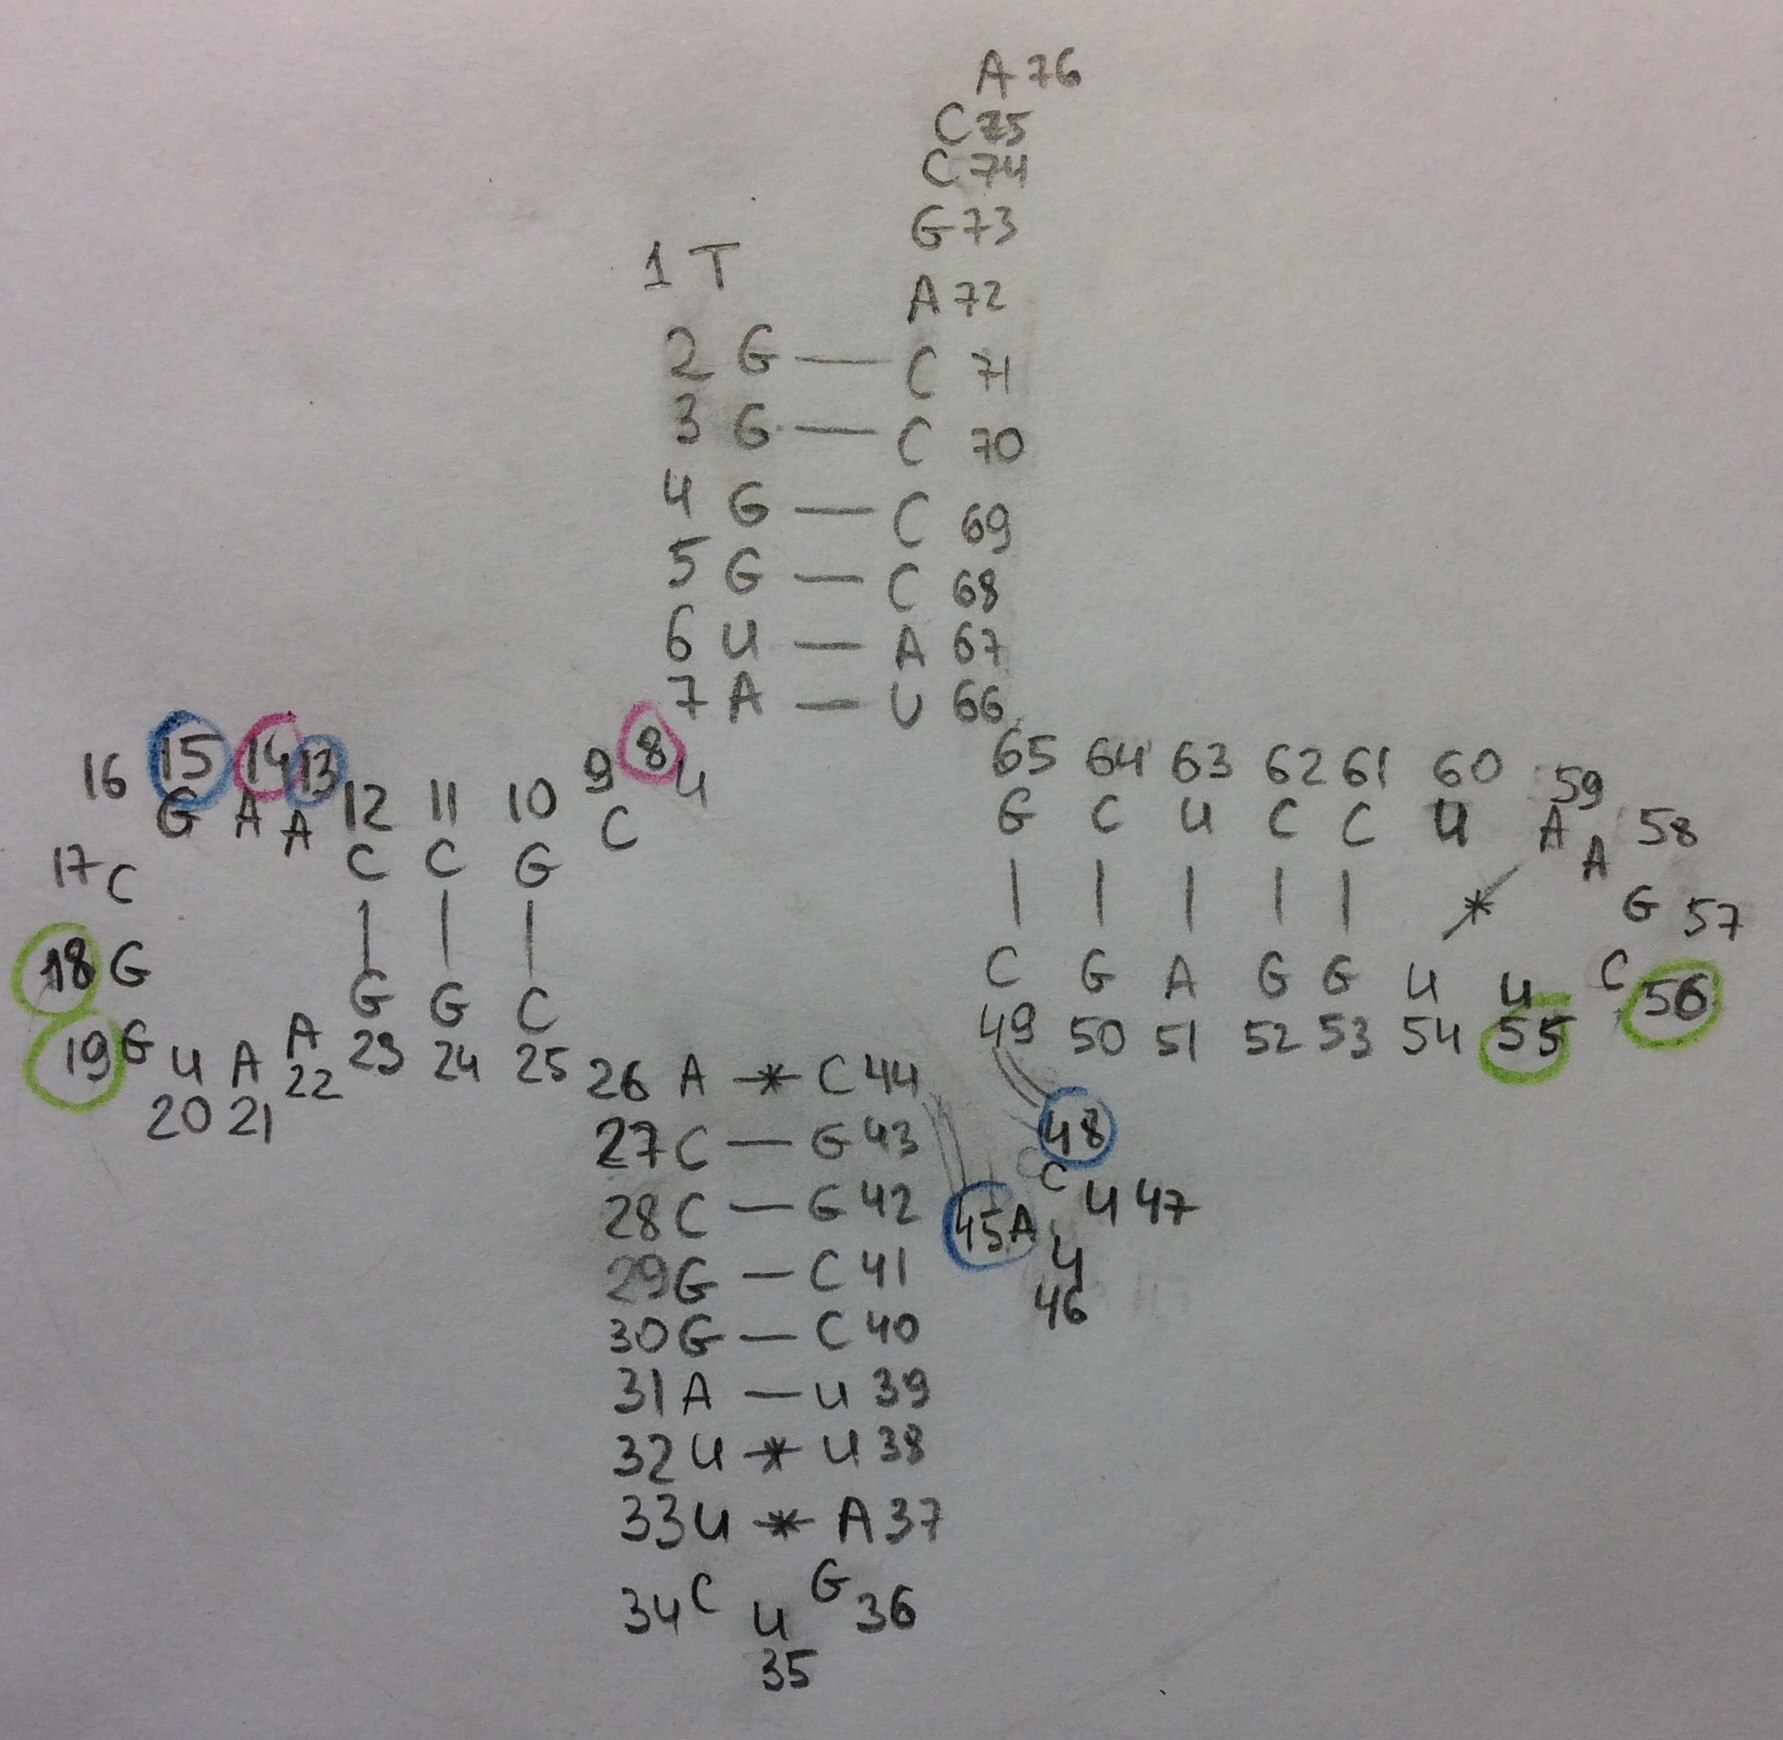 A 76
C 75
C 74
G 73
1 T
A 72
2 G — C 71
3 G — C 70
4 G — C 69
5 G — C 68
6 U — A 67
7 A — U 66
16 15 14 13 12 11 10 9 8
G A A C C G C U
17 C
18 G
19 G U A A G G C
20 21 22 23 24 25
65 64 63 62 61 60 59
G C U C C U A
A 58
G 57
C G A G G U U C 56
49 50 51 52 53 54 55
26 A * C 44
27 C — G 43
28 C — G 42
29 G — C 41
30 G — C 40
31 A — U 39
32 U * U 38
33 U * A 37
34 C U G 36
35
48
C
U 47
45 A U
46
*